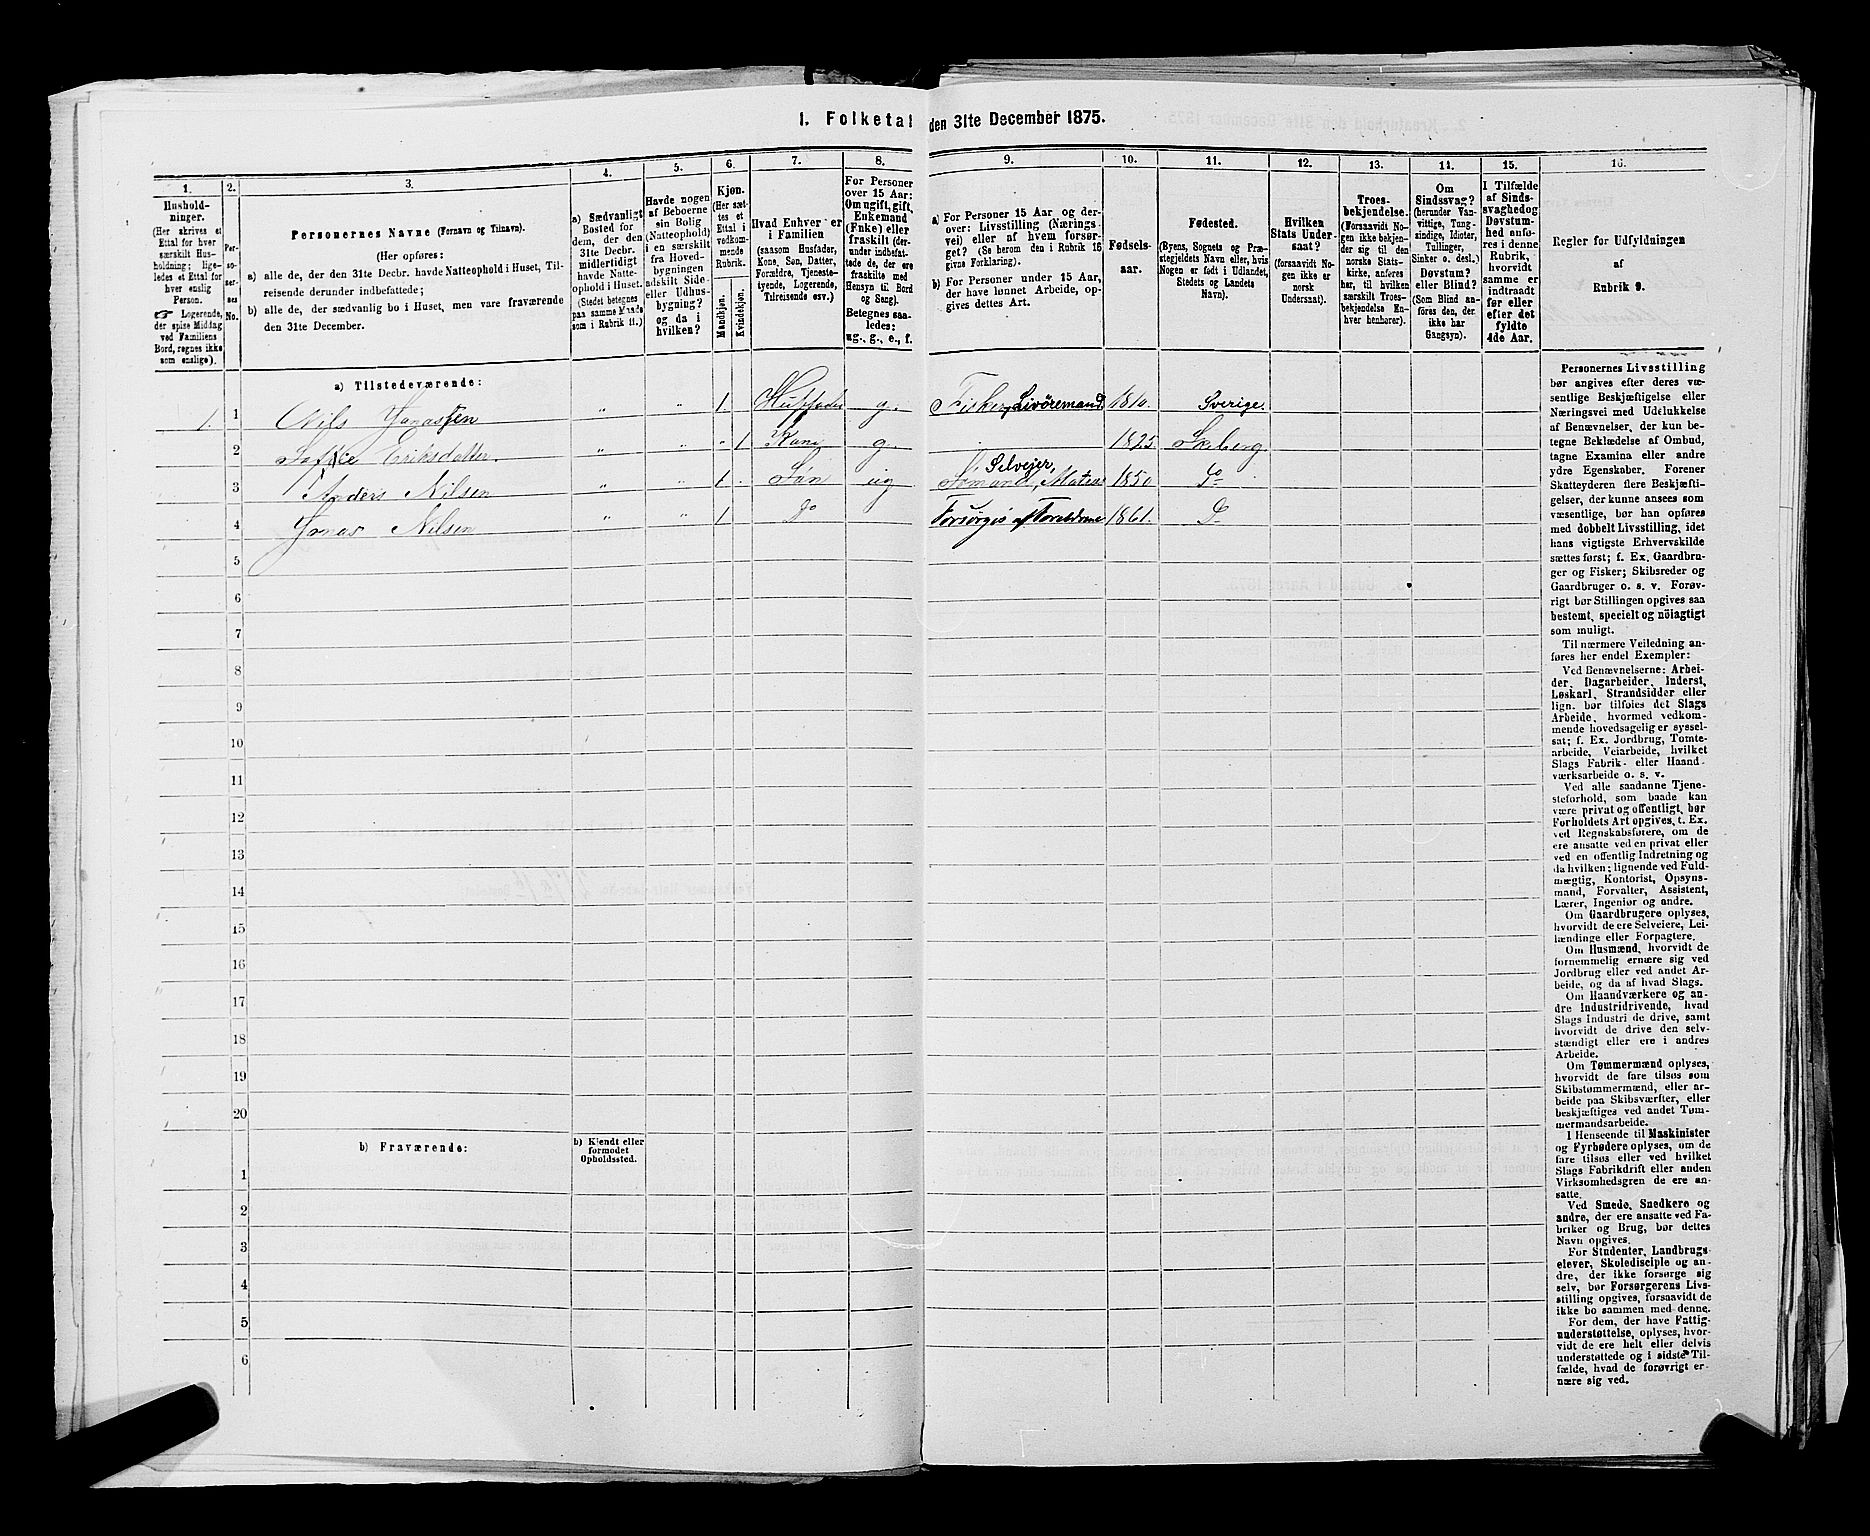 1. Folketal den 31te December 1875.
1.
Hushold-
ninger.
(Her skrives et
Ettal for hver
særskilt Hus-
holdning; lige-
ledes et Ettal for
hver enslig
Person.
☞ Logerende,
der spise Middag
ved Familiens
Bord, regnes ikke
som enslige).
2.
Per-
so-
ner-
nes
No.
3.
Personernes Navne (Fornavn og Tilnavn).
(Her opføres:
a) alle de, der den 31te Decbr. havde Natteophold i Huset, Til-
reisende derunder indbefattede;
b) alle de, der sædvanlig bo i Huset, men vare fraværende
den 31te December.
4.
a) Sædvanligt
Bosted for
dem, der den
31te Decbr.
midlertidigt
havde Natte-
ophold i Huset.
(Stedet betegnes
paa samme Maade
som i Rubrik 11.)
5.
Havde nogen
af Beboerne
sin Bolig
(Natteophold)
i en særskilt
fra Hoved-
bygningen
adskilt Side-
eller Udhus-
bygning?
og da i
hvilken?
6.
Kjøn.
(Her sæt-
tes et
Ettal i
vedkom-
mende
Rubrik.
Mandkjøn.
Kvindekjøn.
7.
Hvad Enhver er
i Familien
(saasom Husfader,
Kone, Søn, Datter,
Forældre, Tjeneste-
tyende, Logerende,
Tilreisende osv.)
8.
For Personer
over 15 Aar:
Om ugift, gift,
Enkemand
(Enke) eller
fraskilt (der-
under indbefat-
tede de, der ere
fraskilte med
Hensyn til Bord
og Seng).
Betegnes saa-
ledes:
ug., g., e., f.
9.
a) For Personer 15 Aar og der-
over: Livsstilling (Nærings-
vei) eller af hvem forsør-
get? (Se herom den i Rubrik 16
givne Forklaring).
b) For Personer under 15 Aar,
der have lønnet Arbeide, op-
gives dettes Art.
10.
Fødsels-
aar.
11.
Fødested.
(Byens, Sognets og Præ-
stegjeldets Navn eller, hvis
Nogen er født i Udlandet,
Stedets og Landets
Navn).
12.
Hvilken
Stats Under-
saat?
(forsaavidt No-
gen ikke er
norsk
Undersaat).
13.
Troes-
bekjendelse.
(Forsaavidt No-
gen ikke bekjen-
der sig til den
norske Stats-
kirke, anføres
her, til hvilken
særskilt Troes-
bekjendelse En-
hver henhører).
14.
Om
Sindssvag?
(herunder Van-
vittige, Tung-
sindige, Idioter,
Tullinger,
Sinker o. desl.)
Døvstum?
eller Blind?
(Som Blind an-
føres den, der
ikke har
Gangsyn).
15.
I Tilfælde
af Sinds-
svaghed og
Døvstum-
hed anfø-
res i denne
Rubrik,
hvorvidt
samme er
indtraadt
før eller
efter det
fyldte
4de Aar.
16.
Regler for Udfyldningen
af
Rubrik 9.
a) Tilstedeværende:
1. 1 Nils Jonassen „ „ 1. Husfader g. Fisker, Livöremand 1810. Sverige.
2 Eriksdatter „ „ „ 1 Kone g. 1825. Skeberg
3 Anders Nilsen „ „ 1 Sön ug Selvejer, Sömand, Matros 1850. Do
4 Jonas Nilsen „ „ 1 Do Forsörges af Foreldrene 1861. Do
5
6
7
8
9
10
11
12
13
14
15
16
17
18
19
20
b) Fraværende:
b) Kjendt eller
formodet
Opholdssted.
1
2
3
4
5
6
Personernes Livsstilling
bør angives efter deres væ-
sentlige Beskjæftigelse eller
Næringsvei med Udelukkelse
af Benævnelser, der kun be-
tegne Beklædelse af Ombud,
tagne Examina eller andre
ydre Egenskaber. Forener
Skatteyderen flere Beskjæfti-
gelser, der kunne ansees som
væsentlige, bør han opføres
med dobbelt Livsstilling, idet
hans vigtigste Erhvervskilde
sættes først; f. Ex. Gaardbru-
ger og Fisker; Skibsreder og
Gaardbruger o. s. v. Forøv-
rigt bør Stillingen opgives saa
bestemt, specielt og nöiagtigt
som muligt.
Til nærmere Veiledning an-
føres her endel Exempler:
Ved Benævnelserne: Arbei-
der, Dagarbeider, Inderst,
Løskarl, Strandsidder eller
lign. bør tilføies det Slags
Arbeide, hvormed vedkom-
mende hovedsagelig er syssel-
sat; f. Ex. Jordbrug, Tomte-
arbeide, Veiarbeide, hvilket
Slags Fabrik- eller Haand-
værksarbeide o. s. v.
Ved alle saadanne Tjene-
steforhold, som baade kan
være privat og offentligt, bør
Forholdets Art opgives, t. Ex.
ved Regnskabsførere, om de
ere ansatte ved en privat eller
ved en offentlig Indretning og
da hvilken; lignende ved Fuld-
mægtig, Kontorist, Opsyns-
mand, Forvalter, Assistent,
Lærer, Ingeniør og andre.
Om Gaardbrugere oplyses,
hvorvidt de ere Selveiere, Lei-
lændinge eller Forpagtere.
Om Husmænd, hvorvidt de
fornemmelig ernære sig ved
Jordbrug eller ved andet Ar-
beide, og da af hvad Slags.
Om Haandværkere og an-
dre Industridrivende, hvad
Slags Industri de drive, samt
hvorvidt de drive den selv-
stændigt eller ere i andres
Arbeide.
Om Tømmermænd oplyses,
hvorvidt de fare tilsøs som
Skibstømmermænd, eller ar-
beide paa Skibsværfter, eller
beskjæftiges ved andet Tøm-
mermandsarbeide.
I Henseende til Maskinister
og Fyrbødere oplyses, om de
fare tilsøs eller ved hvilket
Slags Fabrikdrift eller anden
Virksomhedsgren de ere an-
satte.
Ved Smede, Snedkere og
andre, der ere ansatte ved Fa-
briker og Brug, bør dettes
Navn opgives.
For Studenter, Landbrugs-
elever, Skoledisciple og an-
dre, der ikke forsørge sig
selv, bør Forsørgerens Livs-
stilling opgives, forsaavidt de
ikke bo sammen med denne.
For dem, der have Fattig-
understøttelse, oplyses, hvor-
vidt de ere helt eller delvis
understøttede og i sidste Til-
fælde, hvad de forøvrigt er-
nære sig ved.